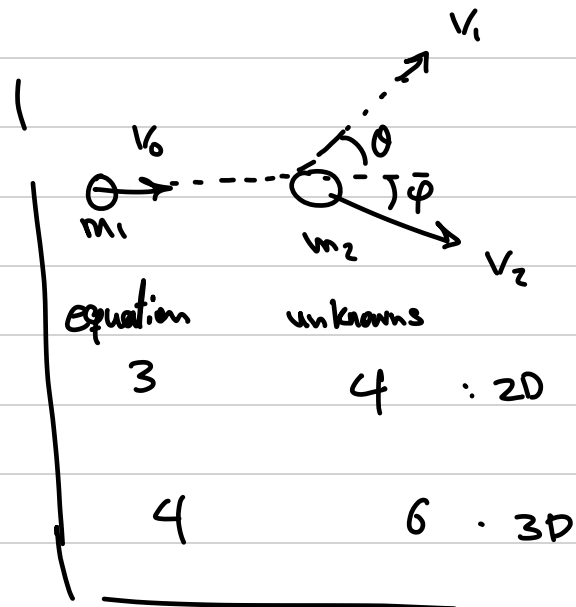 V₁
V₀
θ
φ
m₁
m₂
V₂
equation unknowns
3 4 : 2D
4 6 . 3D